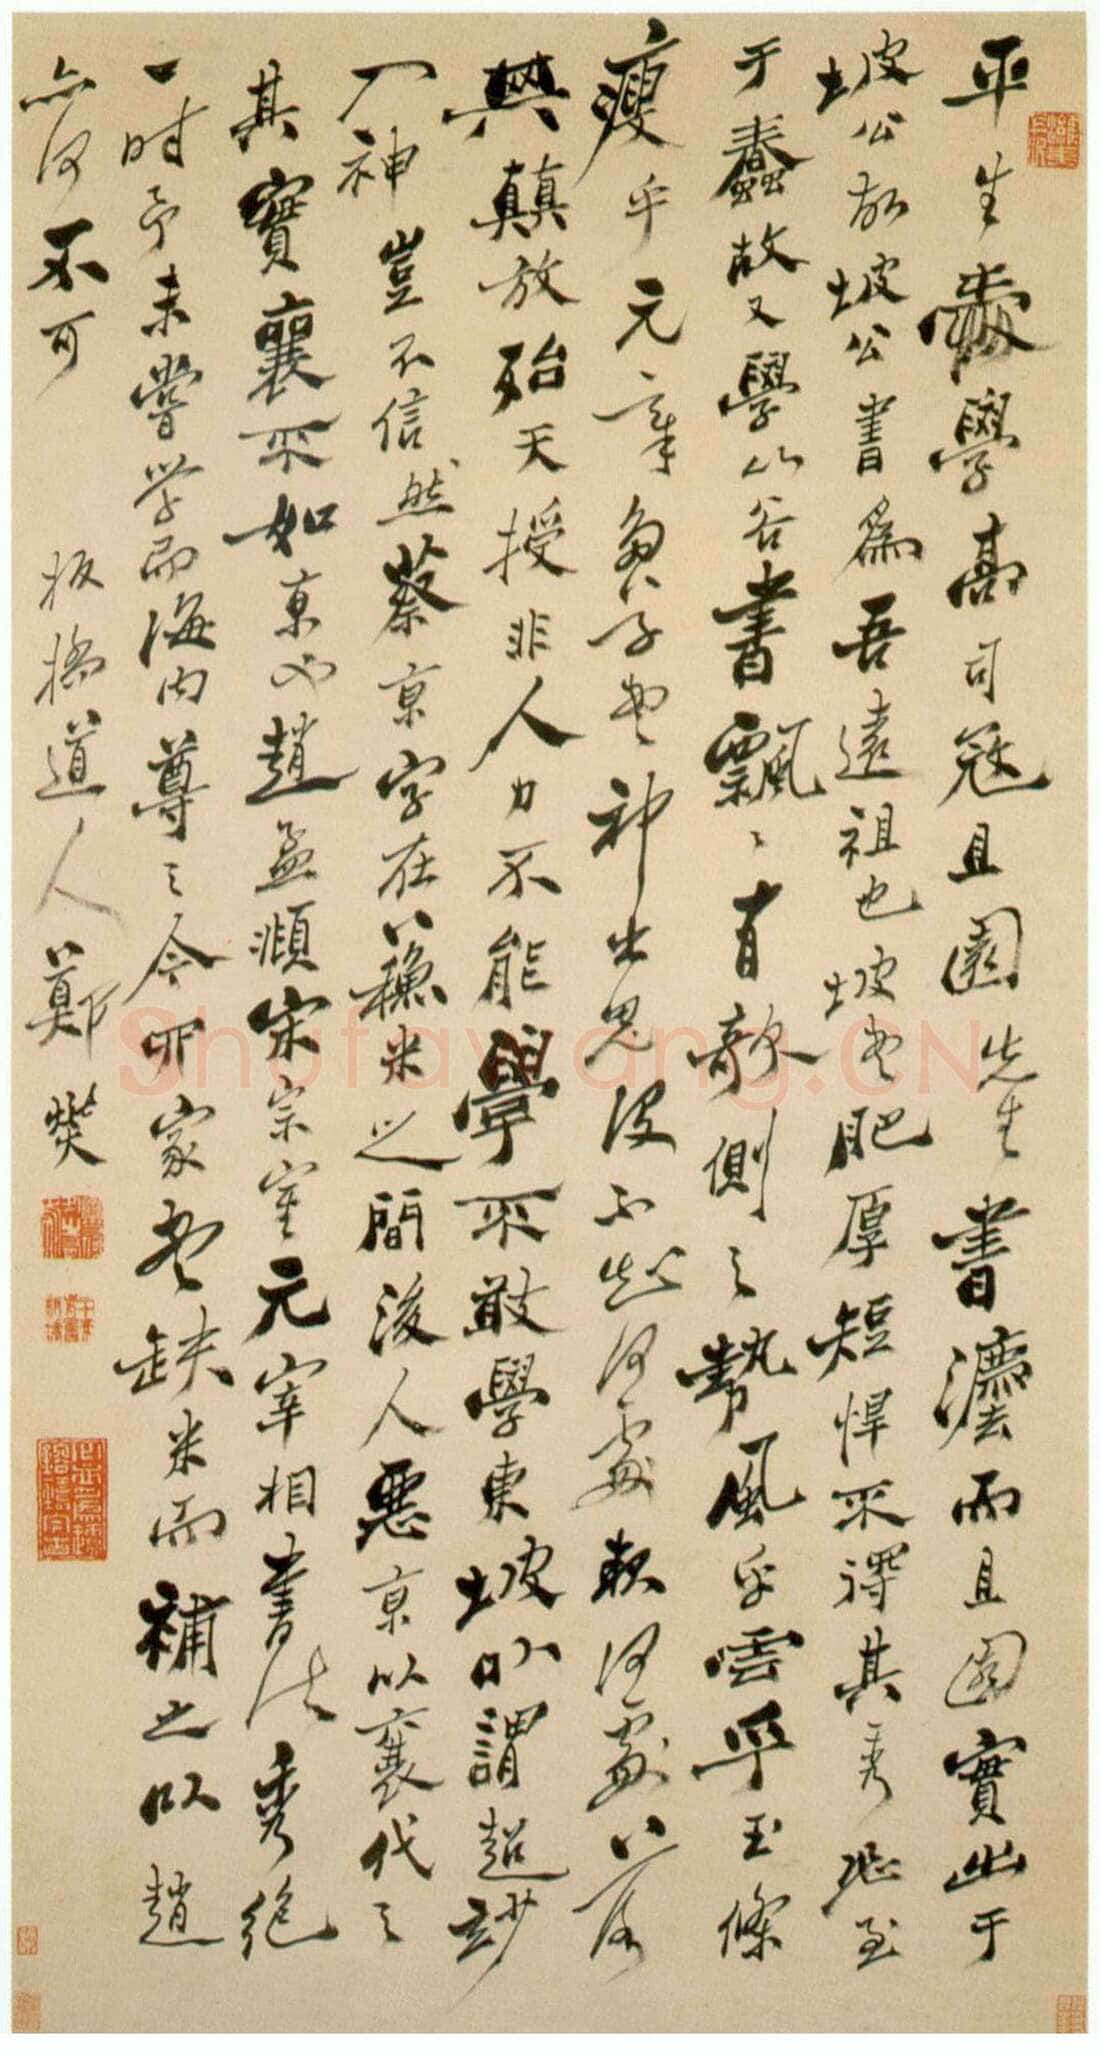 平生愛學高司寇且園先生書法而且園實出于
坡公故坡公書為吾遠祖也坡書肥厚短悍不得其秀恐至
于蠢故又學山谷書飄〻有欹側之勢風乎雲乎玉條
瘦乎元章多不書神出鬼沒不知何處起何處落
與顛放殆天授非人力不能學不敢學東坡以謂超妙
入神豈不信然蔡京字在蘇米之間後人惡京以襄代之
其實襄不如京也趙孟頫宋宗室元宰相書法秀絕
一時予未嘗學而海內尊之今四家書缺米而補之以趙
亦何不可
板橋道人鄭燮
Shufawang.CN